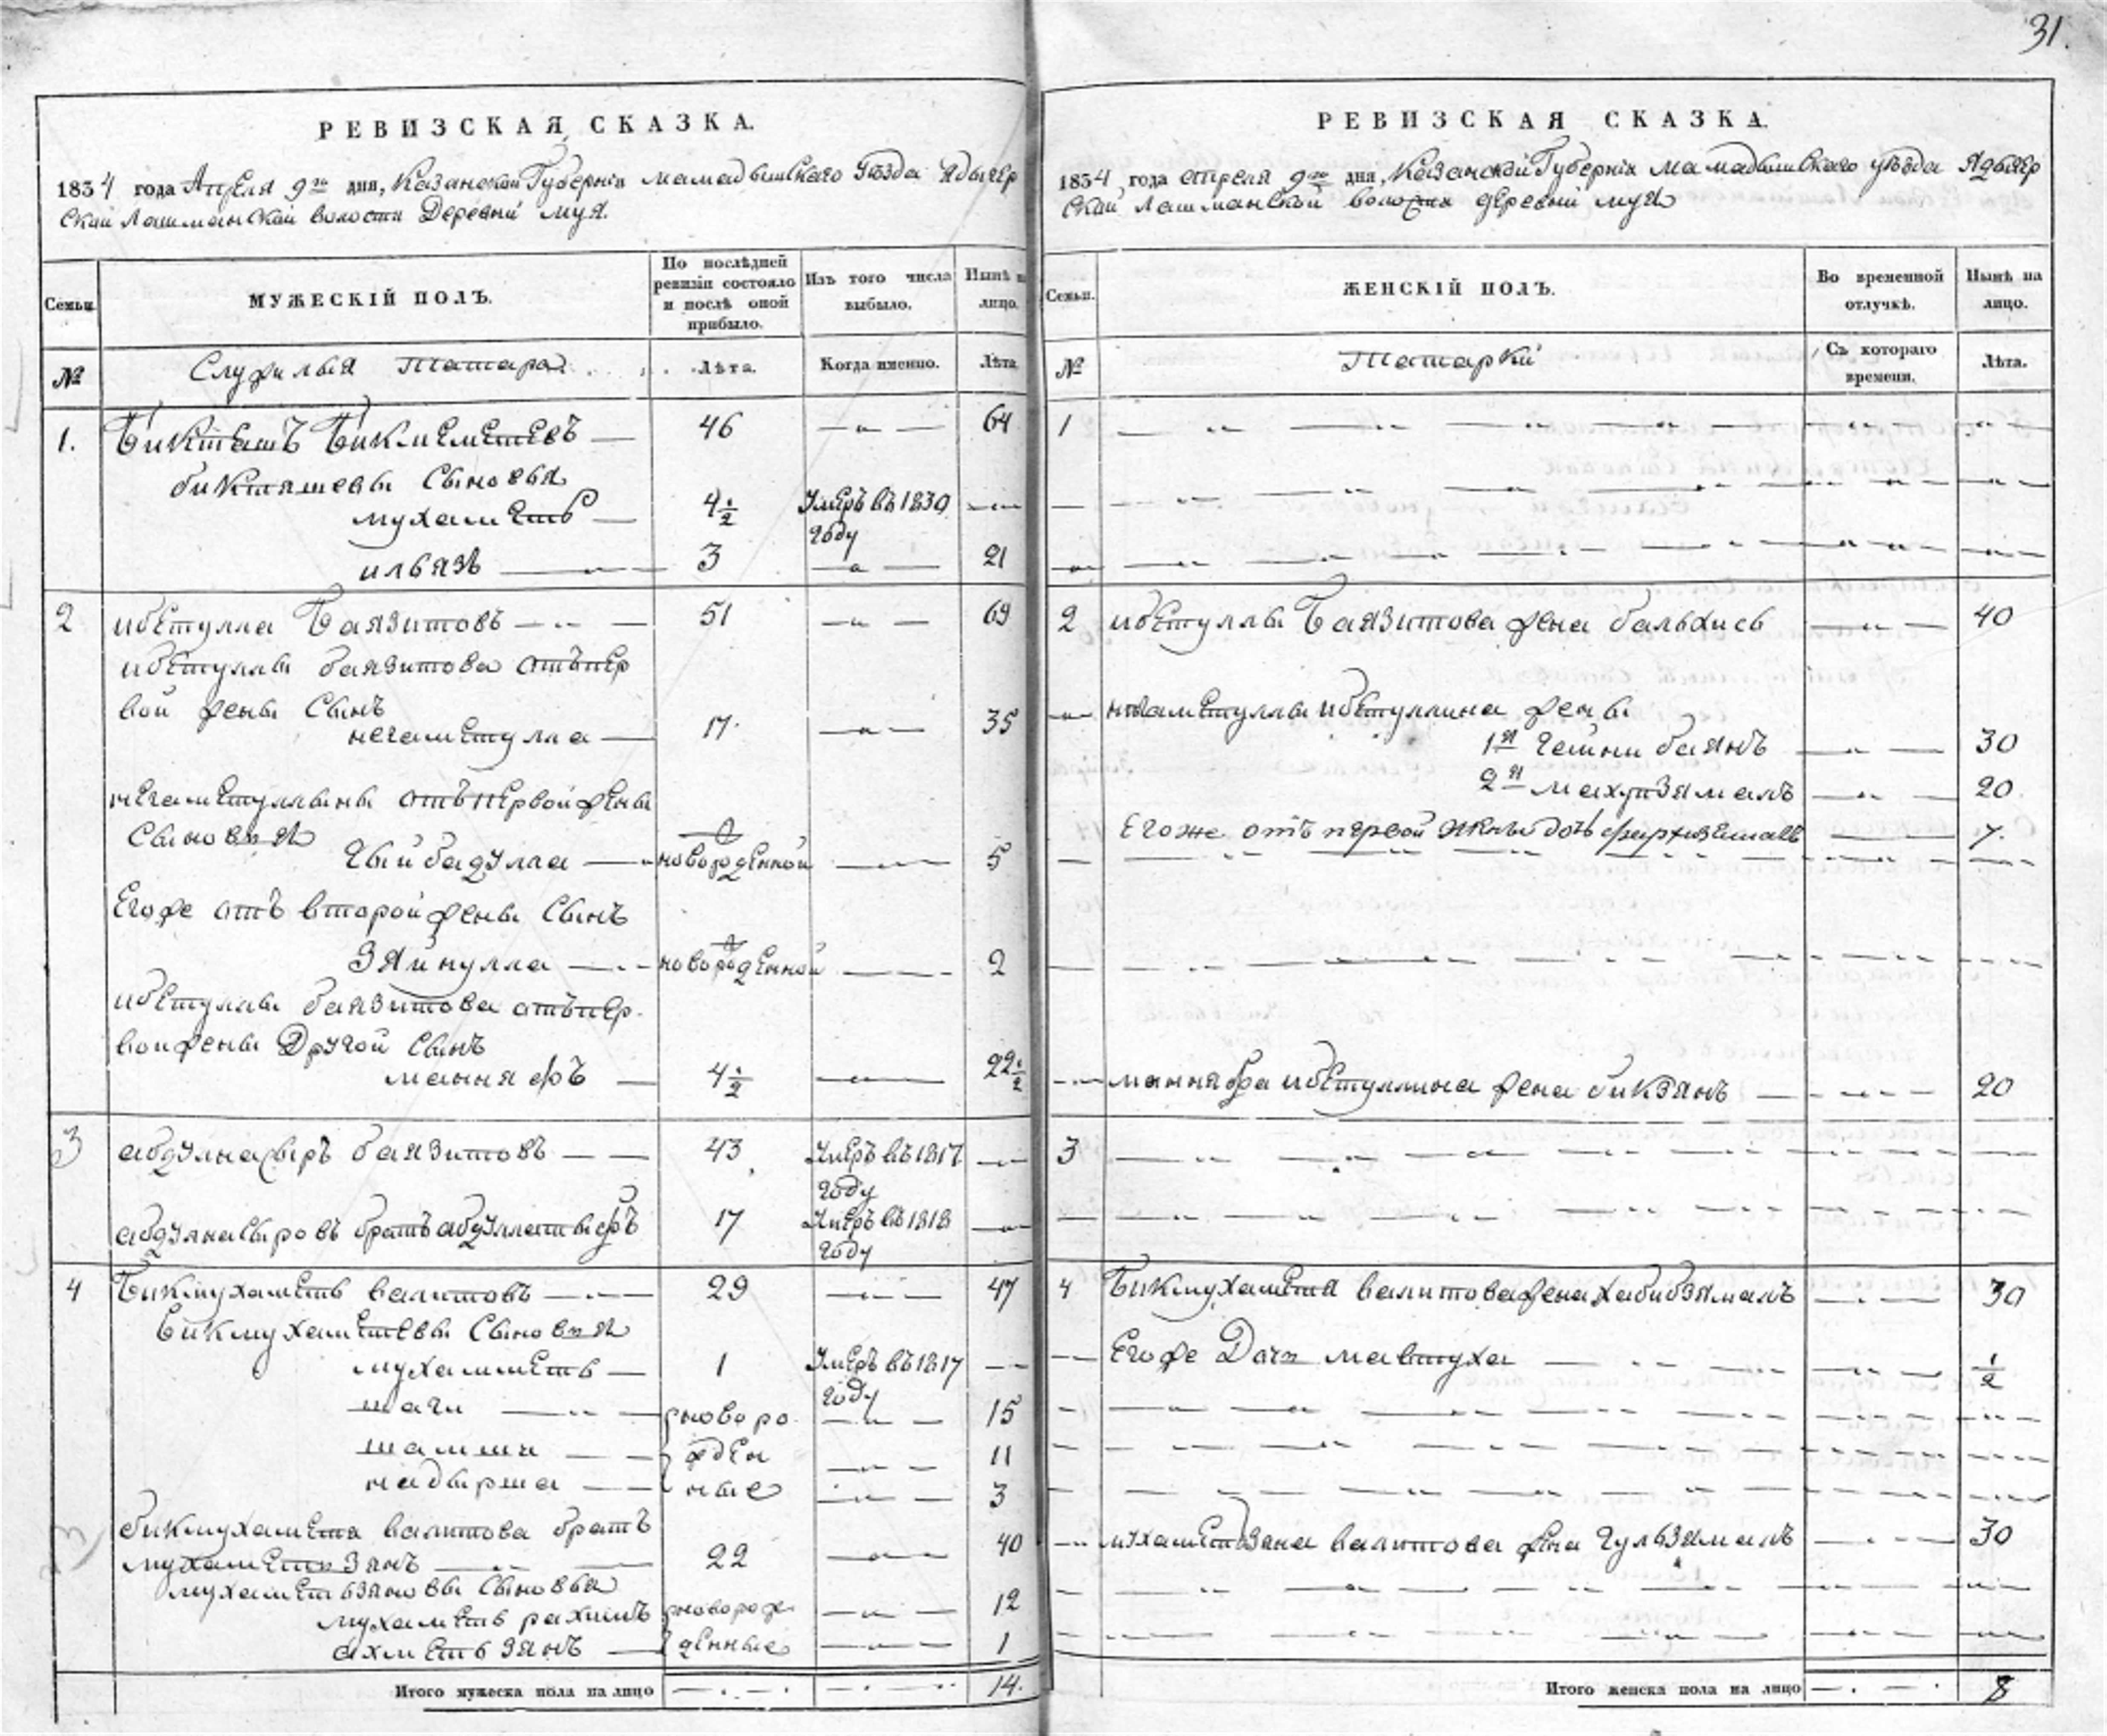 31.
РЕВИЗСКАЯ СКАЗКА.
1834 года Апреля 9го дня, Казанской Губернiи мамадышскаго Уѣзда Ядыгер
ской Лашманской волости Деревни муя.
Семьи.
МУЖЕСКІЙ ПОЛЪ.
По послѣдней ревизіи состояло и послѣ оной прибыло.
Изъ того числа выбыло.
Нынѣ на лицо.
№
Служилыя татара
Лѣта.
Когда именно.
Лѣта.
1. Бикташъ Бикмеметевъ 46 — 64
бикташевы сыновья
мухаметь 4½ Умеръ въ 1830 году —
ильязъ 3 — 21
2 ибетулла Баязитовъ 51 — 69
ибетуллы баязитова отъ пер
вой жены сынъ
негаметулла 17 — 35
негаметуллины отъ первой жены
сыновья
гыйбадулла новорожденной — 5
Егоже отъ второй жены сынъ
зяйнулла новорожденной — 2
ибетуллы баязитова отъ пер
вой жены другой сынъ
манняфъ 4½ — 22½
3 абдулнасыръ баязитовъ 43 Умеръ въ 1817 году —
абдулнасыровъ братъ абдуллатыфъ 17 Умеръ въ 1818 году —
4 Бикмухаметь валитовъ 29 — 47
Бикмухаметевы сыновья
мухамметь 1 Умеръ въ 1817 году —
шаги новоро — 15
шамши жден — 11
надырша ные — 3
бикмухаметя валитова братъ
мухаметзянъ 22 — 40
мухаметьзяновы сыновья
мухаметь рахимъ новорож — 12
ахметьзянъ денные — 1
Итого мужеска пола на лицо — — 14.
РЕВИЗСКАЯ СКАЗКА.
1834 года апреля 9го дня, Казанской Губернiи мамадышскаго уѣзда Ядыгер
ской Лашманской волости деревни муя
Семьи.
ЖЕНСКІЙ ПОЛЪ.
Во временной отлучкѣ.
Нынѣ на лицо.
№
Татарки
Съ котораго времени.
Лѣта.
1
2 ибетуллы Баязитова жена бальхись — 40
нягаметуллы ибетуллина жены
1я гайни баянъ — 30
2я махупзямалъ — 20
Его же отъ первой жены дочь — 7.
манняфа ибетуллина жена бикзянъ — 20
3
4 Бикмухаметя валитова жена хабибзямалъ — 30
Егоже Дочь мавтуха — ½
мухаметзяна валитова жена гульзямалъ — 30
Итого женска пола на лицо — 8